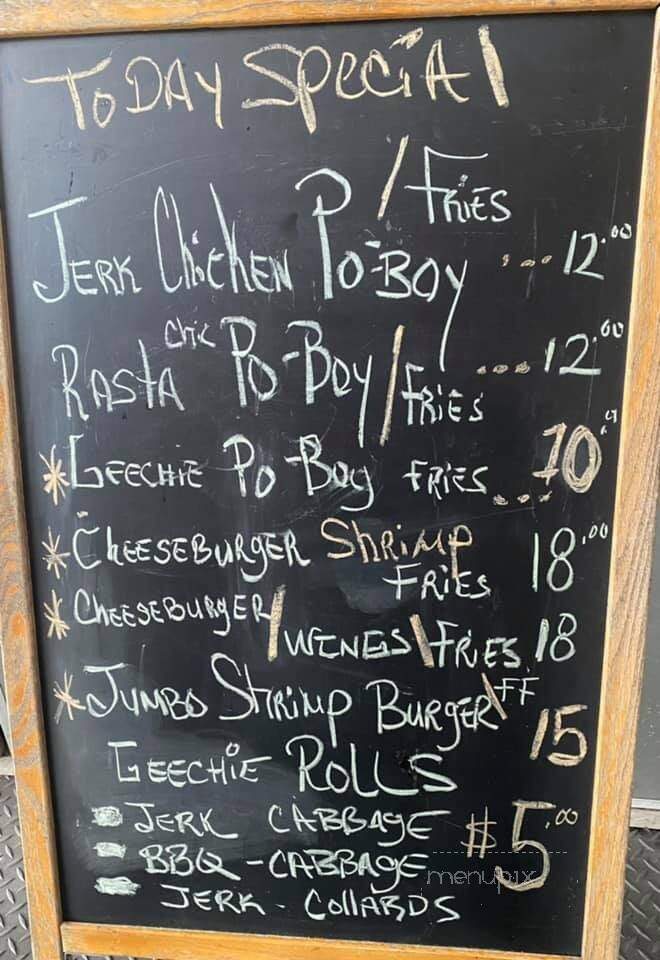 ToDAY SpeciAl
/ Fries
Jerk Chicken Po-Boy ... 12.00
Rasta chic Po-Boy / Fries ... 12.00
* Geechie Po-Boy Fries ... 10
* Cheeseburger Shrimp 18.00
Fries
* Cheeseburger / Wings \ Fries 18
* Jumbo Shrimp Burger \ FF 15
Geechie Rolls
Jerk Cabbage $5.00
BBQ - Cabbage
Jerk - Collards
menupix